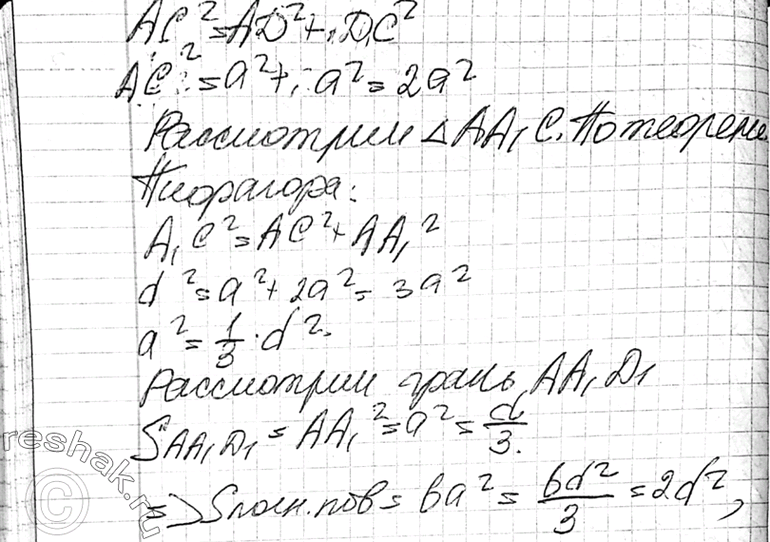 AC² = AD² + DC²
AC² = a² + a² = 2a²
Рассмотрим △AA₁C. По теореме
Пифагора:
A₁C² = AC² + AA₁²
d² = a² + 2a² = 3a²
a² = 1/3 · d².
Рассмотрим грань AA₁D₁
S_AA₁D₁ = AA₁² = a² = d/3.
=> Sполн.пов = 6a² = 6d²/3 = 2d²,
reshak.ru
©